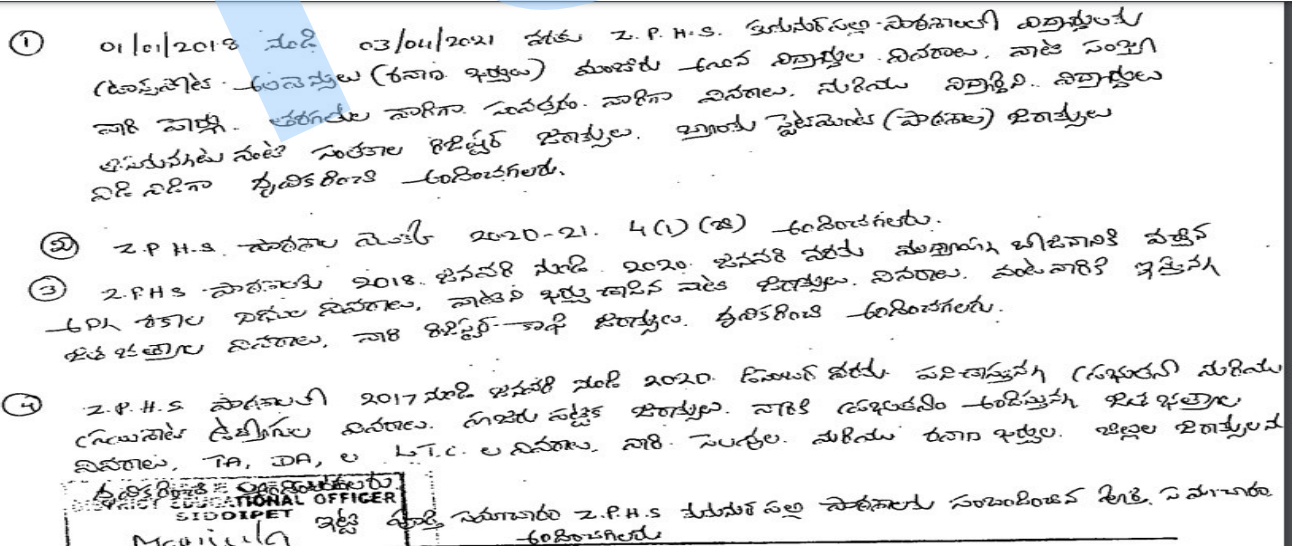 ① 01/01/2018 నుండి 03/04/2021 వరకు Z.P.H.S. పాఠశాలలో విద్యార్థులకు
(రవాణా ఖర్చులు) మంజూరు అయిన విద్యార్థుల వివరాలు, వాటి సంఖ్య
వారి పేర్లు. తరగతుల వారిగా సంవత్సరం వారిగా వివరాలు. మరియు విద్యార్థులు
సంతకాల రిజిష్టర్ జిరాక్సులు. (పాఠశాల) జిరాక్సులు
విడి విడిగా ధృవీకరించి అందించగలరు.
② Z.P H.S. పాఠశాల 2020-21. 4(1)(బి) అందించగలరు.
③ Z.PHS పాఠశాలకు 2018 జనవరి నుండి 2020 జనవరి వరకు మధ్యాహ్న భోజనానికి వచ్చిన
నిధుల వివరాలు, వాటిని ఖర్చు చేసిన వాటి జిరాక్సులు. వివరాలు. వంటవారికి ఇస్తున్న
జీత భత్యాల వివరాలు, వారి రిజిష్టర్ కాపి జిరాక్సులు. ధృవీకరించి అందించగలరు.
④ Z.P.H.S పాఠశాలలో 2017 నుండి జనవరి నుండి 2020 డిసెంబర్ వరకు పనిచేస్తున్న మరియు
వివరాలు. హాజరు పట్టిక జిరాక్సులు. వారికి అందిస్తున్న జీత భత్యాల
వివరాలు, TA, DA, ల L.T.C. ల వివరాలు, వారి సెలవుల మరియు రవాణా ఖర్చుల బిల్లుల జిరాక్సులను
ధృవీకరించి అందించగలరు
DISTRICT EDUCATIONAL OFFICER
SIDDIPET
ఇట్టి పూర్తి సమాచారం Z.P.H.S పాఠశాలకు సంబంధించిన పూర్తి సమాచారం
అందించగలరు